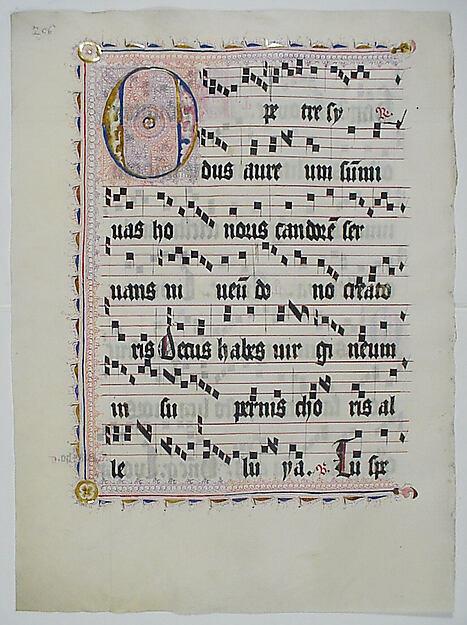 O pe tre sy R
dus aure um sum̄i
uas ho noris candorē ser
uans in neū do no creato
ris Decus habes uir gi neum
in su pernis cho ris al
le lu ya. V. Tu spe